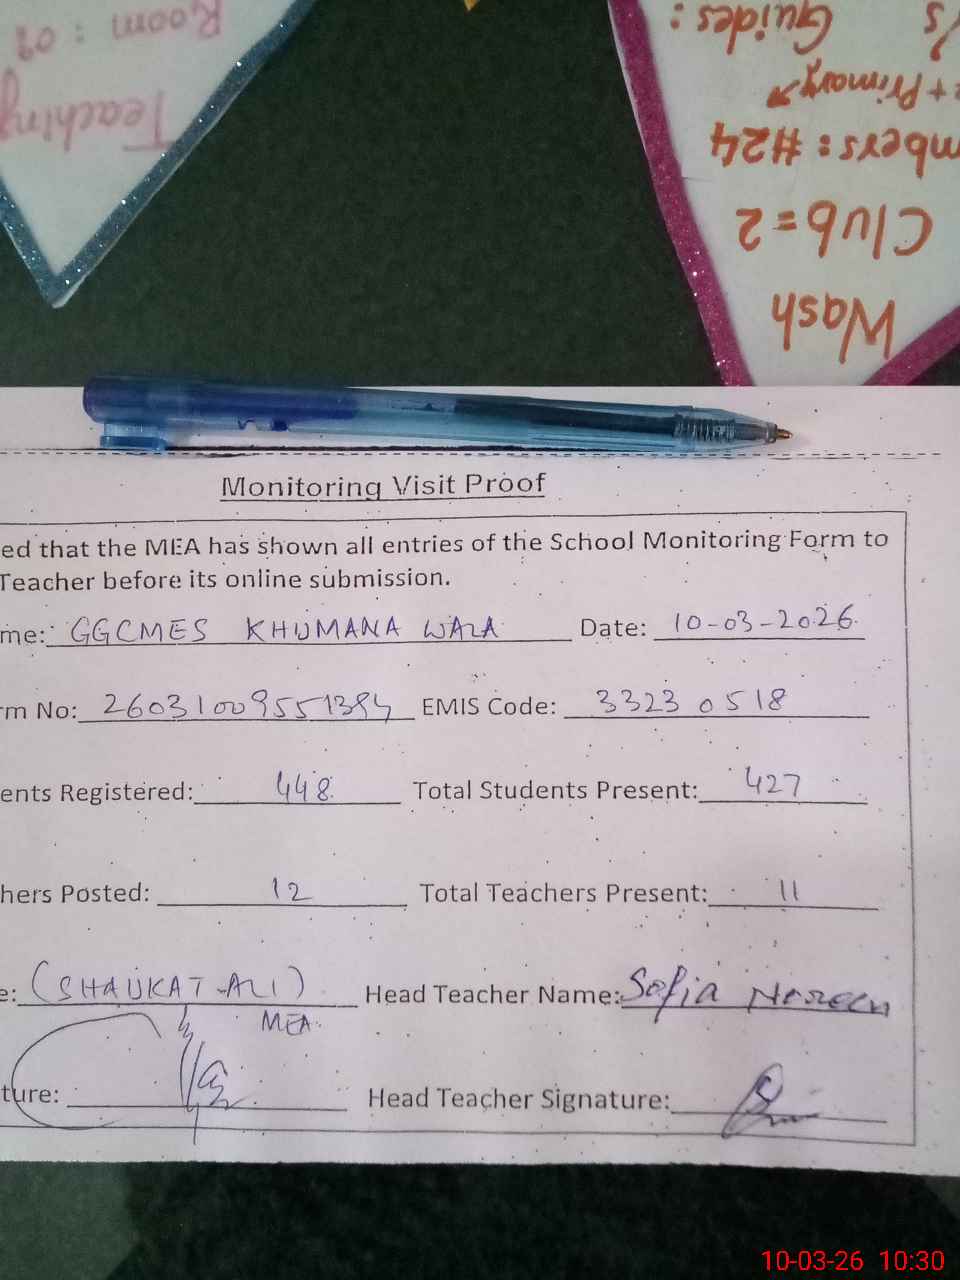 Room : 09
Teaching
Guides :
+ Primary
mbers : #24
Club = 2
Wash
Monitoring Visit Proof
ed that the MEA has shown all entries of the School Monitoring Form to
Teacher before its online submission.
me: GGCMES KHUMANA WALA Date: 10-03-2026
rm No: 26031009551394 EMIS Code: 33230518
ents Registered: 448 Total Students Present: 427
hers Posted: 12 Total Teachers Present: 11
e: (SHAUKAT ALI) Head Teacher Name: Sofia Noreen
MEA
ture: Head Teacher Signature:
10-03-26 10:30